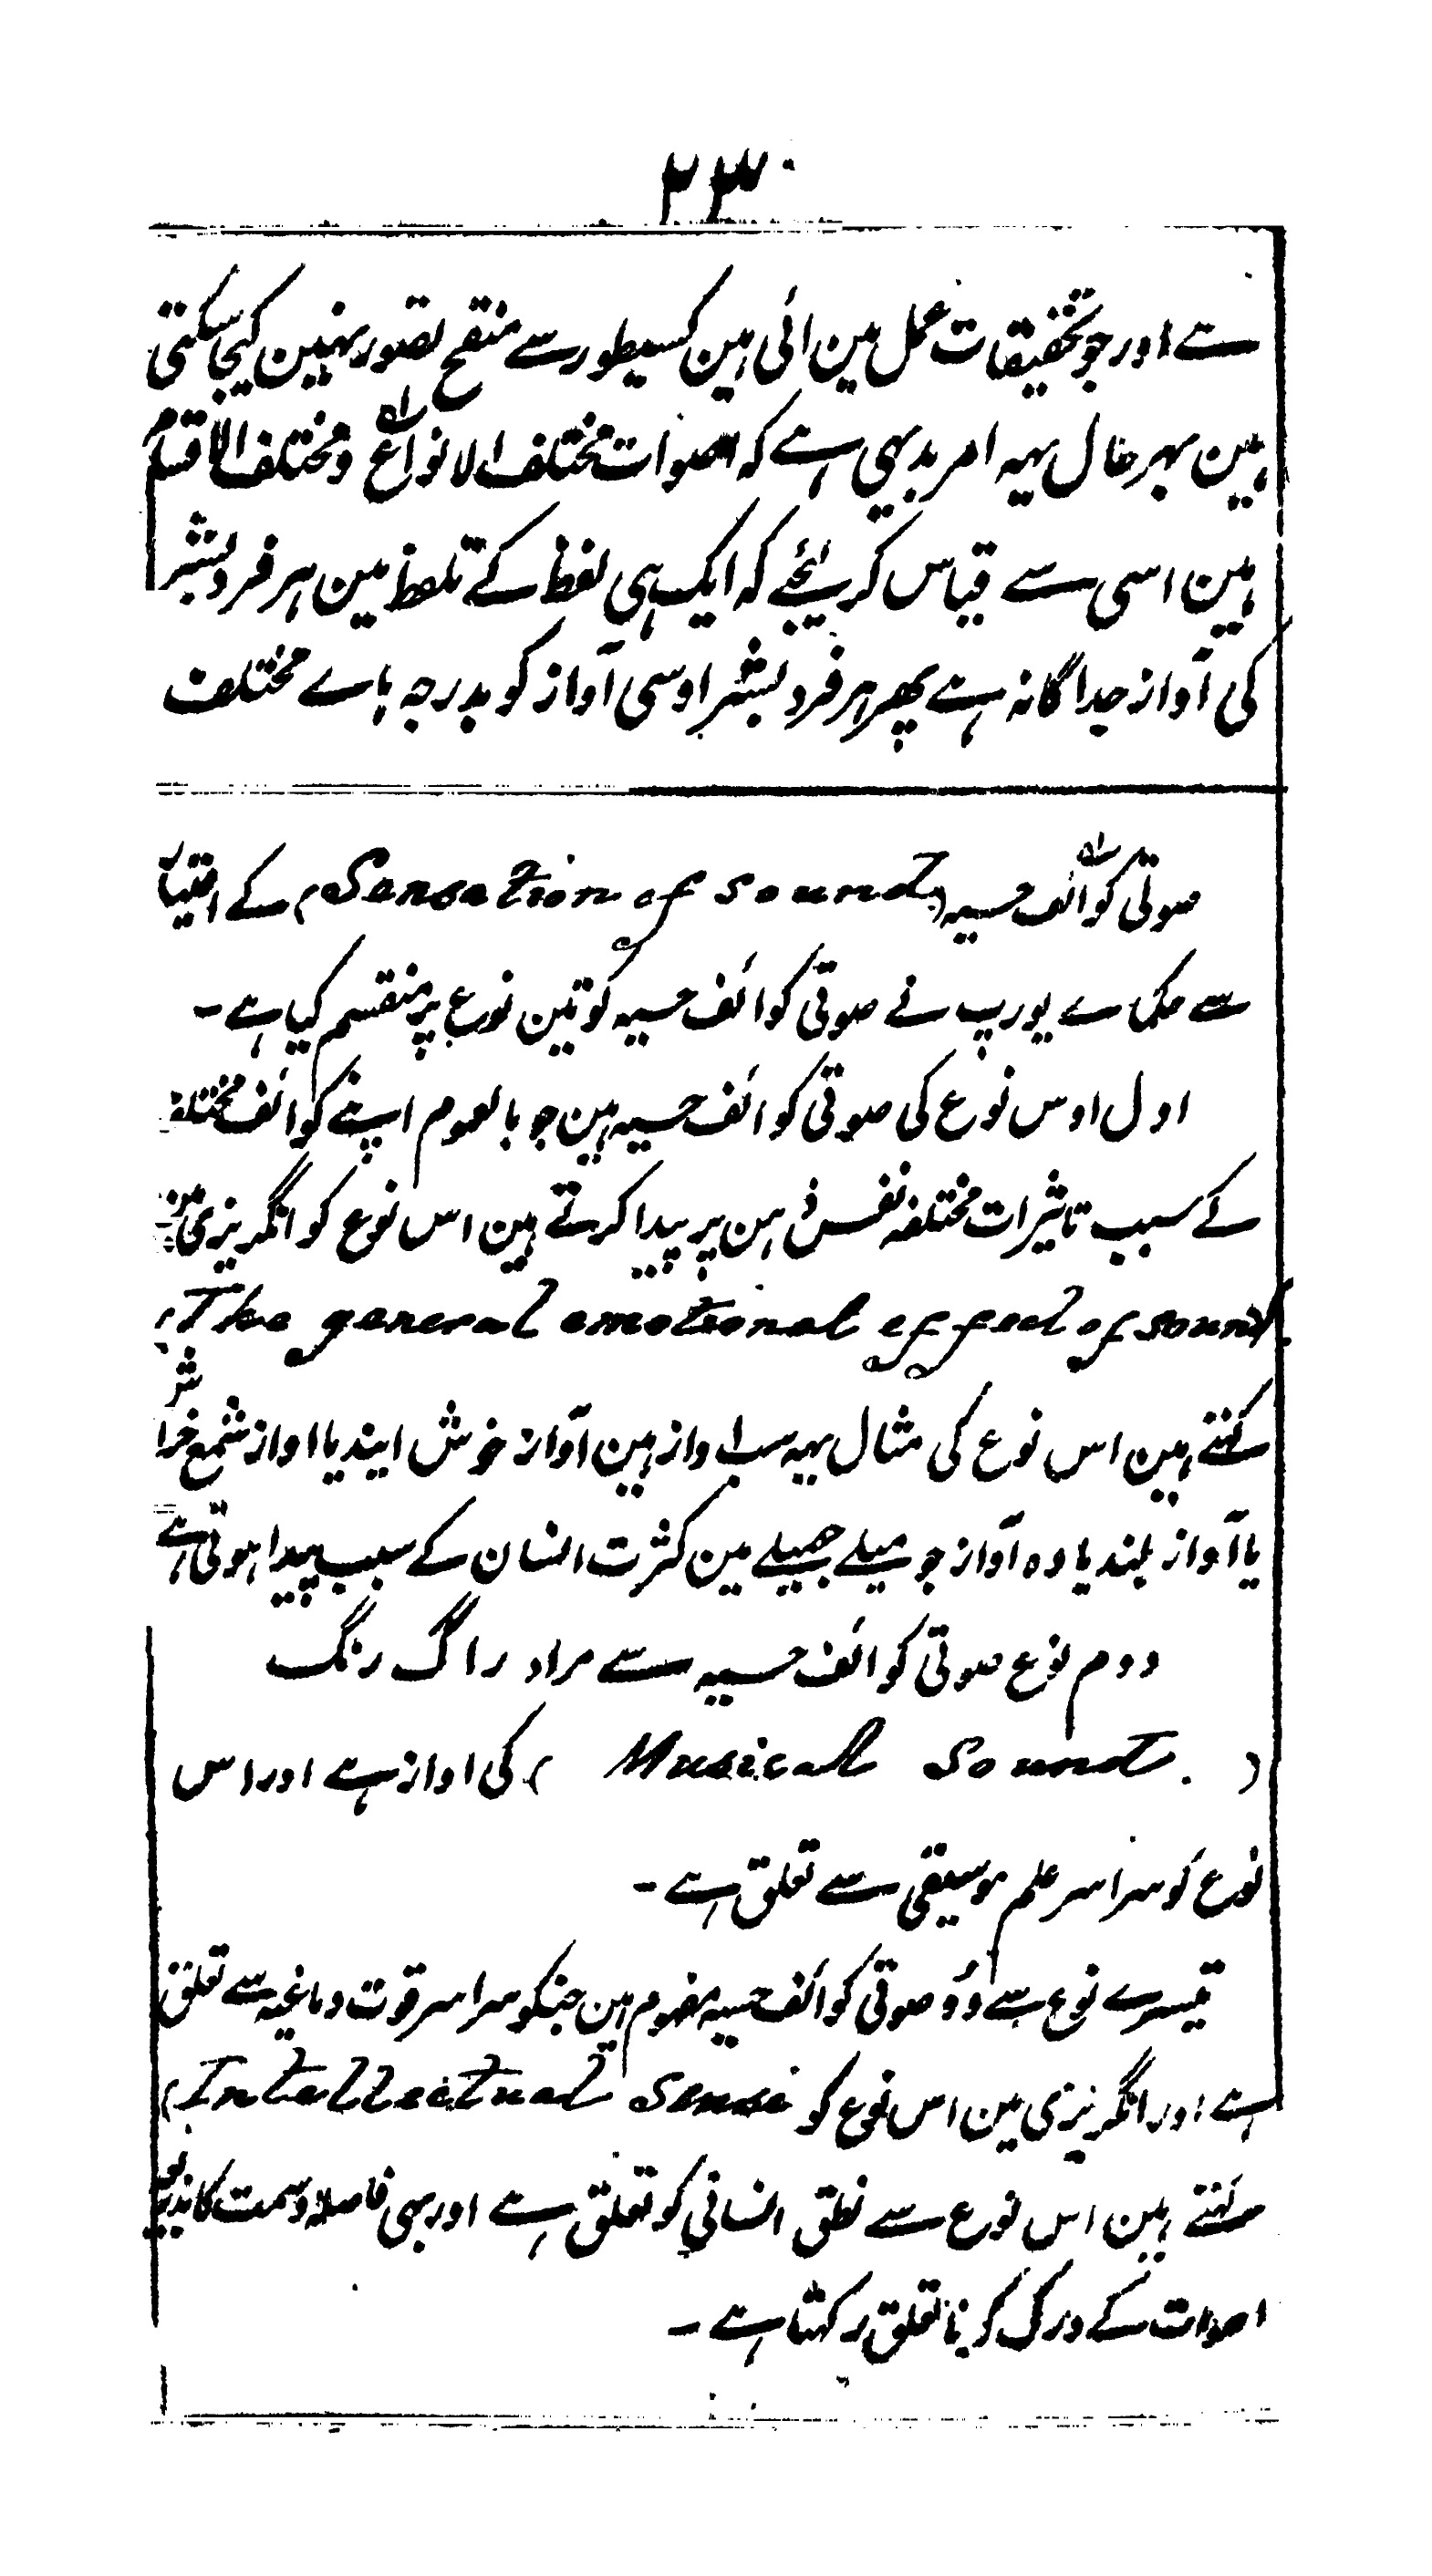 ۲۳۰
سے اور جو تحقیقات عمل مین ائی ہین کسیطور سے منقح تصور نہین کیجا سکتی
ہین بہر حال یہہ امر بدیہی ہے کہ اصوات مختلف الانواع و مختلف الاقسام
ہین اسی سے قیاس کر لیجئے کہ ایک ہی لفظ کے تلفظ مین ہر فرد بشر
کی آواز جداگانہ ہے پھر ہر فرد بشر اوسی آواز کو بدرجہ ہاے مختلف
صوتی کوائف حسیہ (Sensation of sound) کے امتیاز
سے حکماے یورپ نے صوتی کوائف حسیہ کو تین نوع پر منقسم کیا ہے۔
اول اوس نوع کی صوتی کوائف حسیہ ہین جو بالعموم اپنے کوائف مختلفہ
کے سبب تاثیرات مختلفہ نفس ذہن پر پیدا کرتے ہین اس نوع کو انگریزی مین
(The general emotional effect of sound)
کہتے ہین اس نوع کی مثال یہہ سب اواز ہین آواز خوش ایند یا اواز سمع خراش
یا آواز بلند یا وہ آواز جو میلے جھمیلے مین کثرت انسان کے سبب پیدا ہوتی ہے
دوم نوع صوتی کوائف حسیہ سے مراد راگ رنگ
(Musical Sound.) کی اواز ہے اور اس
نوع کو سراسر علم موسیقی سے تعلق ہے۔
تیسرے نوع سے وُہ صوتی کوائف حسیہ مفہوم ہین جنکو سراسر قوت دماغیہ سے تعلق
ہے اور انگریزی مین اس نوع کو (Intellectual Sense
کہتے ہین اس نوع سے نطق انسانی کو تعلق ہے اور بہی فاصلہ و سمت کا بذریعہ
اصوات کے درک کرنا تعلق رکہتا ہے۔